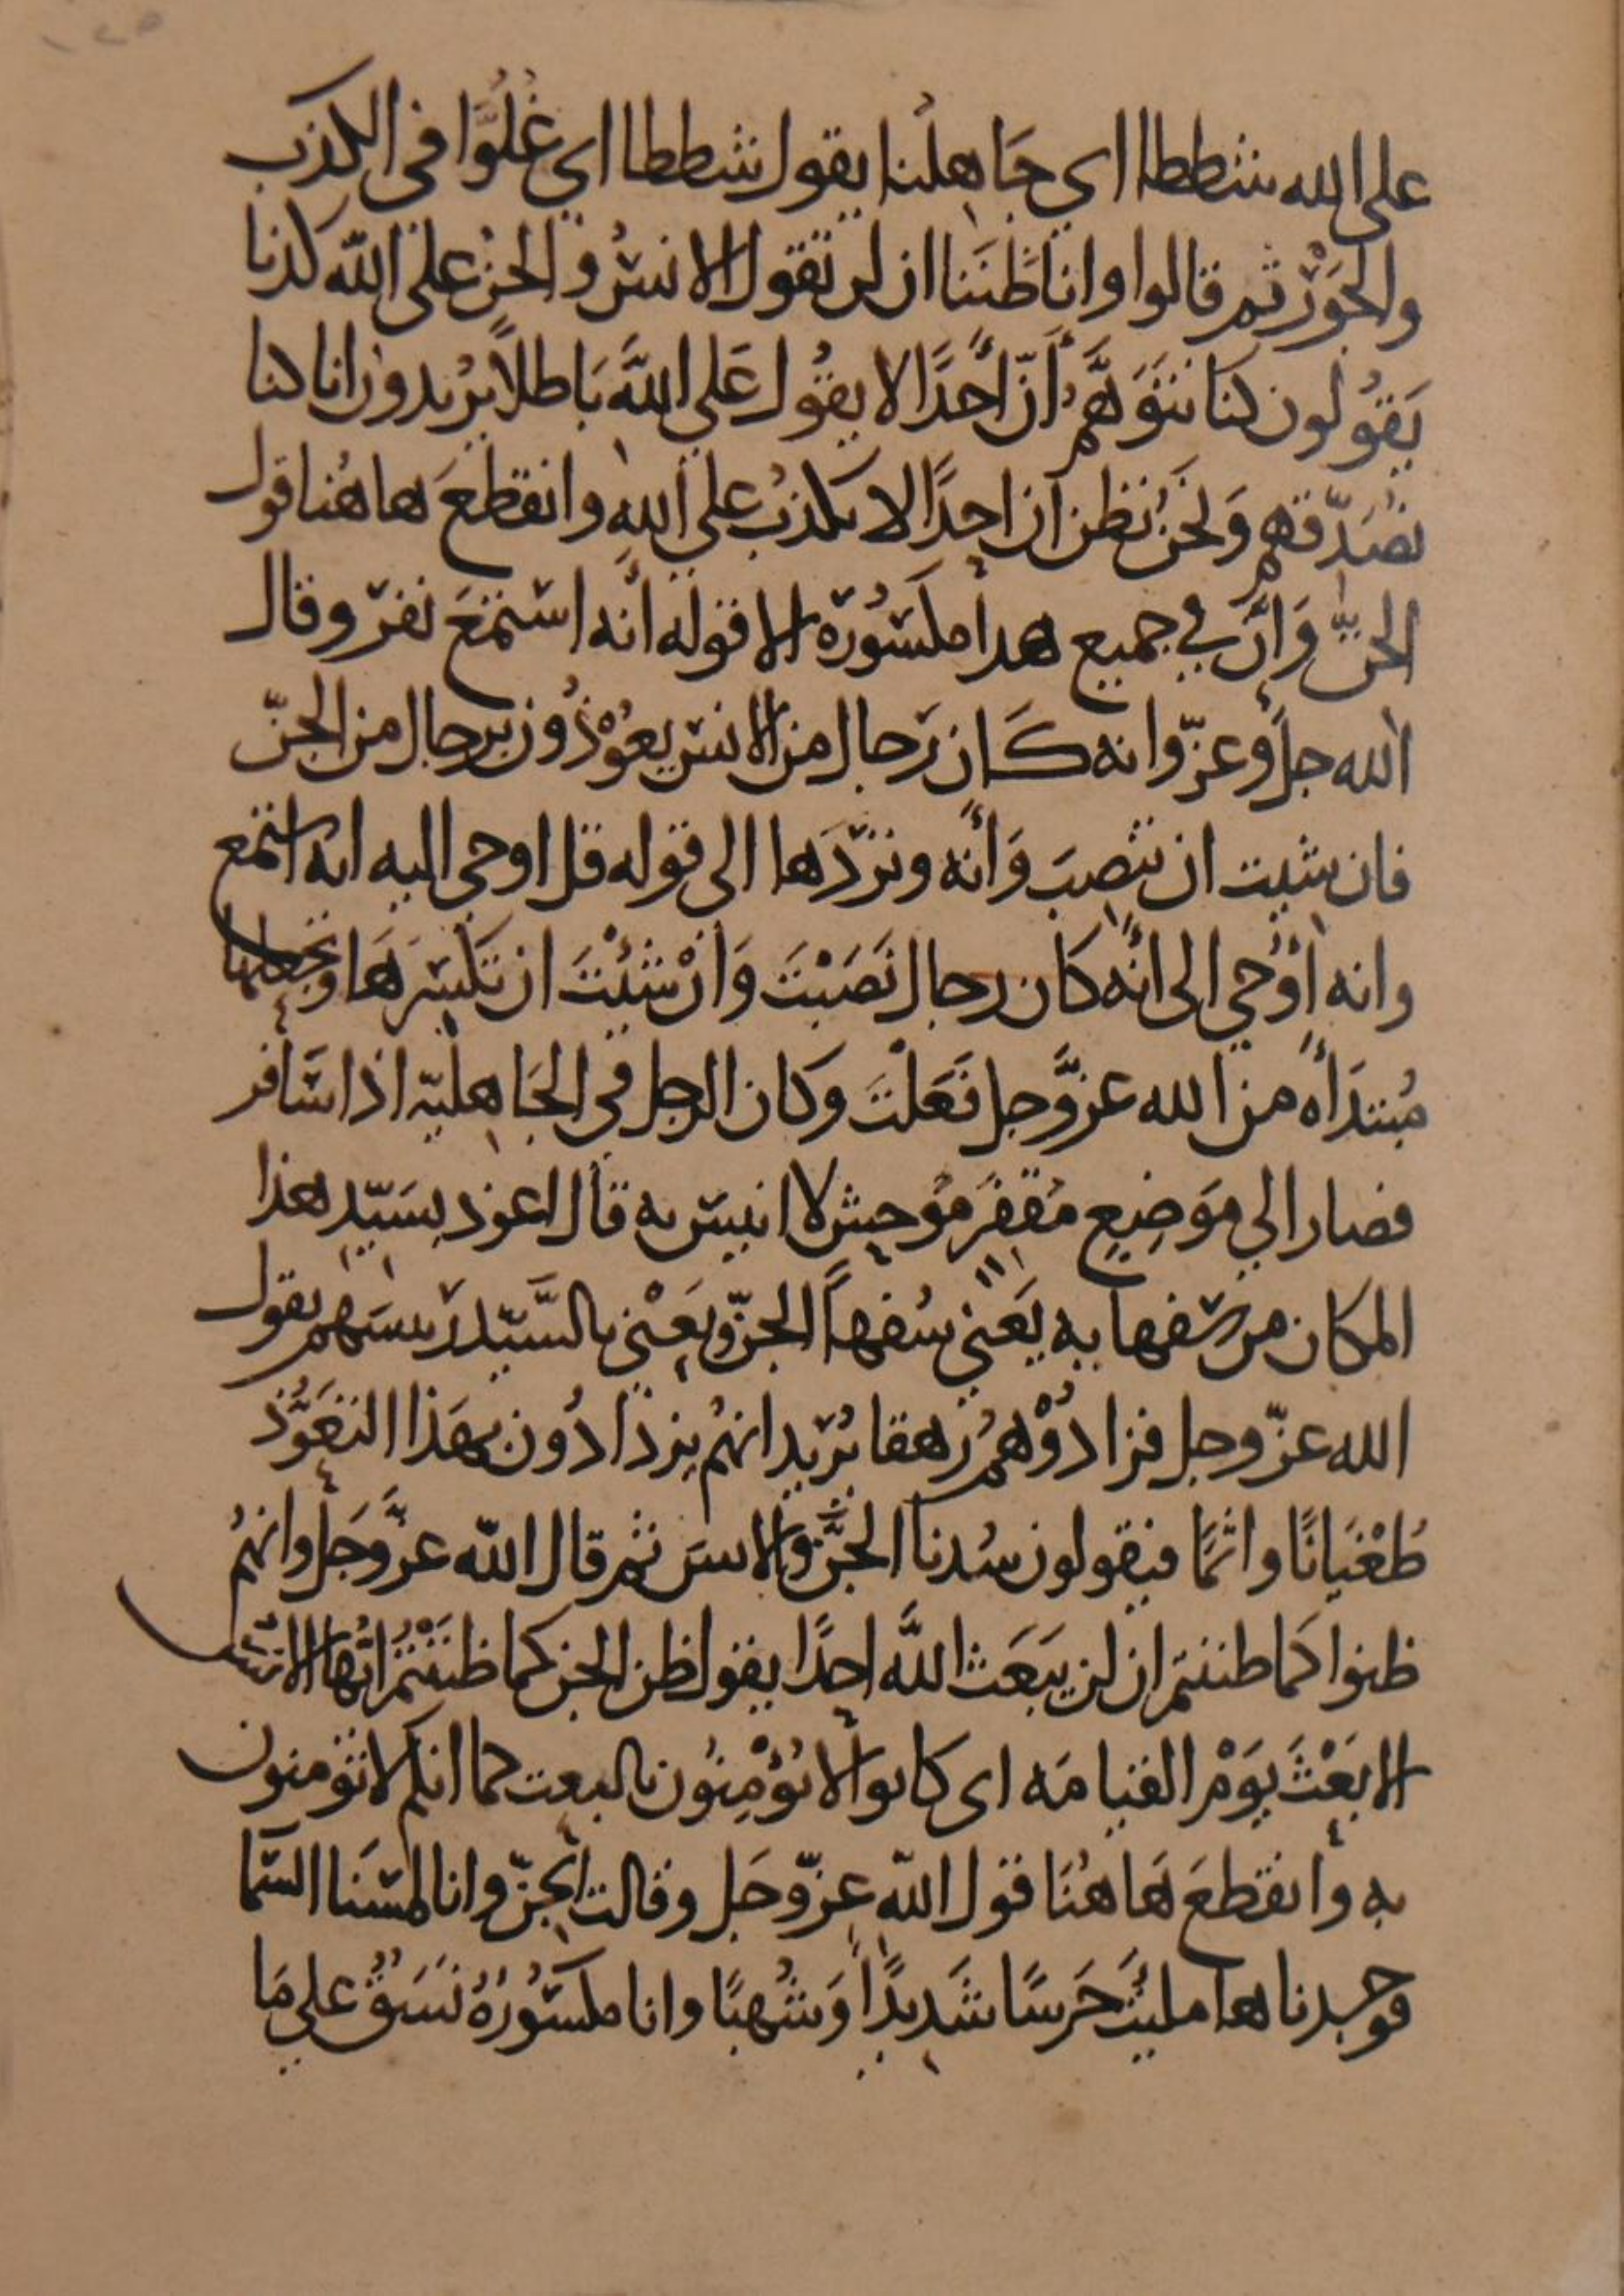 على الله شططا اي جَاهلنا يقول شططا اي غُلُوَّا فى الكذب
والجَوْر ثم قالوا وانا ظنَنا ان لن تقول الانسُ والجنُ على الله كذبا
يَقُولون كنا نتوَهَّمُ أنّ أحدًا لا يقُول عَلي اللَّه بَاطلاً يُريدون انا كنا
نُصَدّقهم وَنحنُ نظن ان احدًا لا يكذبُ علي اللهِ وانقطعَ هاهُنا قول
الجنِّ وَانّ في جميع هدا مكسُورة الا قوله أنه استمَعَ نفر وقال
الله جلَّ وعزّ وانه كَان رَجال من الانس يعُوْذُون برجال من الجنّ
فان شيت ان تنصِبَ وَأنه ونردّهَا الى قوله قل اوحي اليه انه استمع
وانه اوْحي الى أنَّه كان رجال نَصَبْتَ وَانْ شئْتَ ان تكسرَهَا وتجعلها
مُبتدَأه من الله عزَّ وجل فَعَلْتَ وكان الرجل في الجَاهليّه اذا سَافر
فصار الي مَوَضِعٍ مُقفر مُوحِشٍ لا انيسَ به قال اعوذ بسَيّدِ هذا
المكان من سفهابه يَعني سُفهاً الجنّ ويَعْني بالسَّيّد رَيسَهم يقول
الله عزّ وجل فزادُوْهُمُ رَهقا يُريد انهُم يزدَادُون بهَذا التعَوُّذ
طُغْيَانًا واثمًا فيقولون سُدنا الجنَّ والانسَ ثم قال الله عزَّ وَجَل وانهُم
ظنوا كَما ظننتم ان لن يَبَعَث اللَّه احدًا يقول ظن الجن كما ظنَنْتُمْ ايُّها الانس
الا بَعْثَ يَوْم القيامَه اى كانوا لا يُؤْمِنُون بالبعث كما انكم لا تؤمنون
به وانقطعَ هَاهُنَا قول الله عزّ وجَل وقالت الجنّ وانا لمسَنا السّما
فوجدنا ها مليَتْ حَرسًا شَديدًا وَشُهبًا وانا مكسُورَةُ نَسَقُ علي مَا